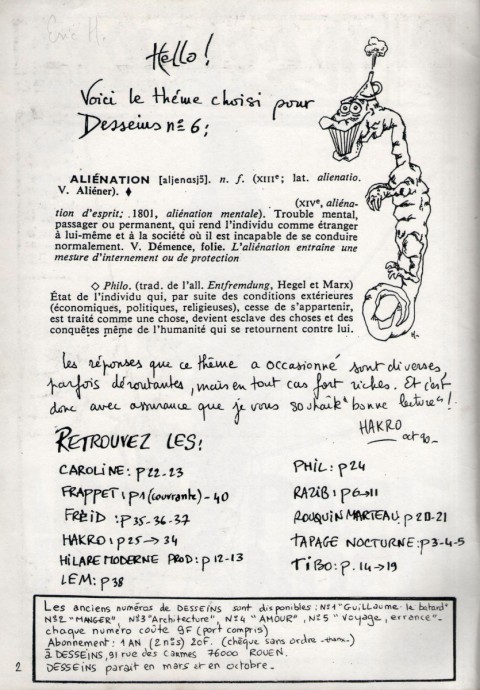 Eric H.
Hello!
Voici le thème choisi pour
Desseins n° 6:
ALIÉNATION [aljenasjɔ̃]. n. f. (XIIIe; lat. alienatio.
V. Aliéner). ♦
(XIVe, aliéna-
tion d'esprit; 1801, aliénation mentale). Trouble mental,
passager ou permanent, qui rend l'individu comme étranger
à lui-même et à la société où il est incapable de se conduire
normalement. V. Démence, folie. L'aliénation entraîne une
mesure d'internement ou de protection
◇ Philo. (trad. de l'all. Entfremdung, Hegel et Marx)
État de l'individu qui, par suite des conditions extérieures
(économiques, politiques, religieuses), cesse de s'appartenir,
est traité comme une chose, devient esclave des choses et des
conquêtes même de l'humanité qui se retournent contre lui.
les réponses que ce thème a occasionné sont diverses,
parfois déroutantes, mais en tout cas fort riches. Et c'est
donc avec assurance que je vous souhaite "bonne lecture"!
HAKRO
oct 90_
RETROUVEZ LES!
CAROLINE: p 22-23
FRAPPET: p1 (couvrante) - 40
FREID: p35-36-37
HAKRO: p25 → 34
HILARE MODERNE PROD: p 12-13
LEM: p 38
PHIL: p 24
RAZIB: p6→11
ROUQUIN MARTEAU: p 20-21
TAPAGE NOCTURNE: p3-4-5
TIBO: p. 14→19
Les anciens numéros de DESSEINS sont disponibles: N°1 "Guillaume le batard"
N°2 "MANGER", N°3 "Architecture", N°4 "AMOUR", N°5 "Voyage, errance".
chaque numéro coûte 9F (port compris)
Abonnement: 1 AN (2 n°s) 20F. (chèque sans ordre
à DESSEINS, 91 rue des Carmes 76000 ROUEN.
DESSEINS paraît en mars et en octobre.
2